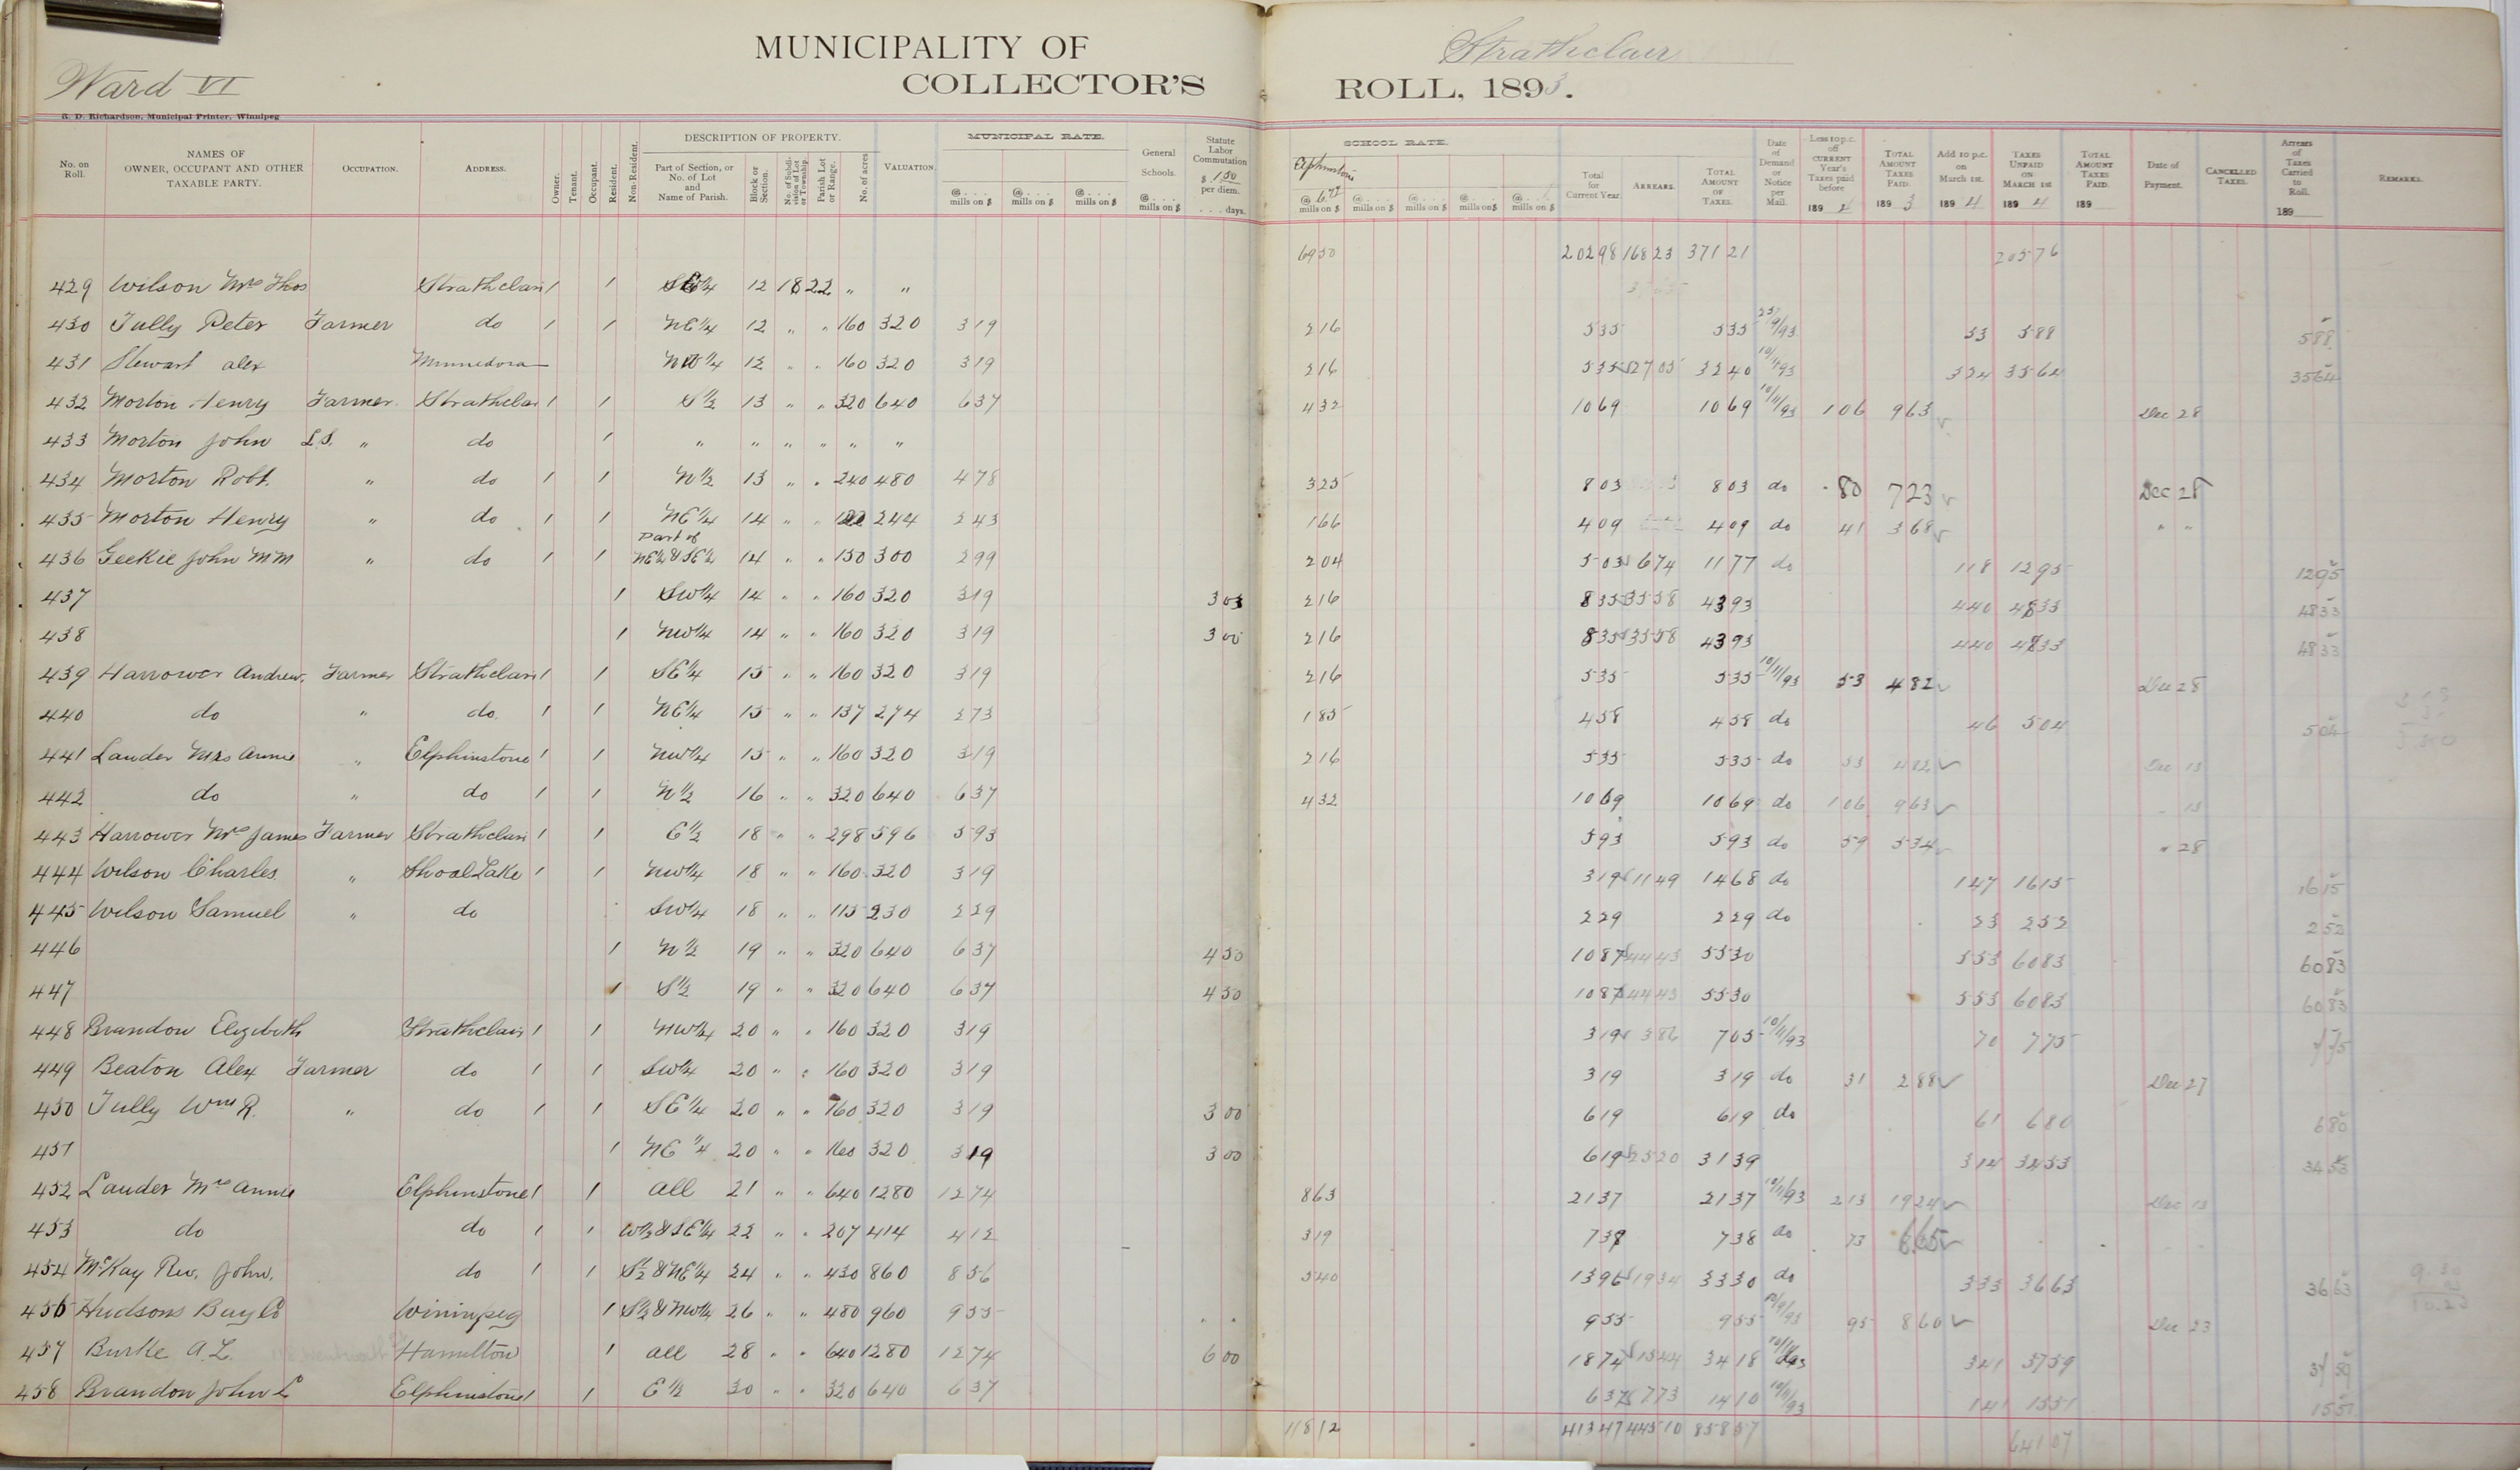 MUNICIPALITY OF Strathclair
Ward VI COLLECTOR'S ROLL, 1893.
R. D. Richardson, Municipal Printer, Winnipeg
No. on Roll. NAMES OF OWNER, OCCUPANT AND OTHER TAXABLE PARTY. OCCUPATION. ADDRESS. Owner. Tenant. Occupant. Resident. Non-Resident. DESCRIPTION OF PROPERTY. Part of Section, or No. of Lot and Name of Parish. Block or Section. No. of Subdivision of Lot or Township. Parish Lot or Range. No. of acres VALUATION. MUNICIPAL RATE. @ . . . mills on $ @ . . . mills on $ @ . . . mills on $ General Schools. @ . . . mills on $ Statute Labor Commutation $ 1.50 per diem. . . . days. SCHOOL RATE. Elphinstone @ 6.72 mills on $ @ . . . mills on $ @ . . . mills on $ @ . . . mills on $ @ . . . mills on $ Total for Current Year. ARREARS. TOTAL AMOUNT OF TAXES. Date of Demand or Notice per Mail. Less 10 p.c. off CURRENT Year's Taxes paid before 189 TOTAL AMOUNT TAXES PAID. 189 3 Add 10 p.c. on March 1st. 189 4 TAXES UNPAID ON MARCH 1ST 189 4 TOTAL AMOUNT TAXES PAID. 189 Date of Payment. CANCELLED TAXES. Arrears of Taxes Carried to Roll. 189 REMARKS.
69 50 202 98 168 23 371 21 205 76
429 Wilson Mrs Thos Strathclair 1 1 12 18 22 " "
430 Tully Peter Farmer do 1 1 NE 1/4 12 " " 160 320 3 19 2 16 5 35 5 35 53 5 88 5 88
431 Stewart Alex Minnedosa NW 1/4 12 " " 160 320 3 19 2 16 5 35 27 05 32 40 10/11/93 3 24 35 64 35 64
432 Morton Henry Farmer Strathclair 1 1 S 1/2 13 " " 320 640 6 37 4 32 10 69 10 69 10/11/93 1 06 9 63 Dec 28
433 Morton John L.S. " do 1 " " " " " "
434 Morton Robt. " do 1 1 N 1/2 13 " " 240 480 4 78 3 25 8 03 8 03 do 80 7 23 Dec 28
435 Morton Henry " do 1 1 NE 1/4 14 " " 122 244 2 43 1 66 4 09 4 09 do 41 3 68 " "
436 Geekie John M M " do 1 1 Part of NE 1/4 & SE 1/4 14 " " 150 300 2 99 2 04 5 03 6 74 11 77 do 1 18 12 95 12 95
437 1 SW 1/4 14 " " 160 320 3 19 3 00 2 16 8 35 35 58 43 93 4 40 48 33 48 33
438 1 NW 1/4 14 " " 160 320 3 19 3 00 2 16 8 35 35 58 43 93 4 40 48 33 48 33
439 Harrower Andrew Farmer Strathclair 1 1 SE 1/4 15 " " 160 320 3 19 2 16 5 35 5 35 10/11/93 53 4 82 Dec 28
440 do " do 1 1 NE 1/4 15 " " 137 274 2 73 1 85 4 58 4 58 do 46 5 04 5 04
441 Lauder Mrs Annie " Elphinstone 1 1 NW 1/4 15 " " 160 320 3 19 2 16 5 35 5 35 do 53 4 82 Dec 13
442 do " do 1 1 N 1/2 16 " " 320 640 6 37 4 32 10 69 10 69 do 1 06 9 63 " 13
443 Harrower Mrs James Farmer Strathclair 1 1 E 1/2 18 " " 298 596 5 93 5 93 5 93 do 59 5 34 " 28
444 Wilson Charles " Shoal Lake 1 1 NW 1/4 18 " " 160 320 3 19 3 19 11 49 14 68 do 1 47 16 15 16 15
445 Wilson Samuel " do SW 1/4 18 " " 115 230 2 29 2 29 2 29 do 23 2 52 2 52
446 1 N 1/2 19 " " 320 640 6 37 4 50 10 87 44 43 55 30 5 53 60 83 60 83
447 1 S 1/2 19 " " 320 640 6 37 4 50 10 87 44 43 55 30 5 53 60 83 60 83
448 Brandon Elizabeth Strathclair 1 1 NW 1/4 20 " " 160 320 3 19 3 19 3 86 7 05 10/11/93 70 7 75 7 75
449 Beaton Alex Farmer do 1 1 SW 1/4 20 " " 160 320 3 19 3 19 3 19 do 31 2 88 Dec 27
450 Tully Wm R. " do 1 1 SE 1/4 20 " " 160 320 3 19 3 00 6 19 6 19 do 61 6 80 6 80
451 1 NE 1/4 20 " " 160 320 3 19 3 00 6 19 25 20 31 39 3 14 34 53 34 53
452 Lauder Mrs Annie Elphinstone 1 1 all 21 " " 640 1280 12 74 8 63 21 37 21 37 10/11/93 2 13 19 24 Dec 13
453 do do 1 1 W 1/2 & SE 1/4 22 " " 207 414 4 12 3 19 7 38 7 38 do 73 6 65
454 McKay Rev. John. do 1 1 S 1/2 & NE 1/4 24 " " 430 860 8 56 5 40 13 96 19 34 33 30 do 3 33 36 63 36 63
456 Hudsons Bay Co Winnipeg 1 S 1/2 & NW 1/4 26 " " 480 960 9 55 9 55 9 55 95 8 60 Dec 23
457 Burke A. L. Hamilton 1 all 28 " " 640 1280 12 74 6 00 18 74 15 44 34 18 3 41 37 59 37 59
458 Brandon John L Elphinstone 1 1 E 1/2 30 " " 320 640 6 37 6 37 7 73 14 10 10/11/93 1 41 15 51 15 51
118 12 413 47 445 10 858 57 641 07